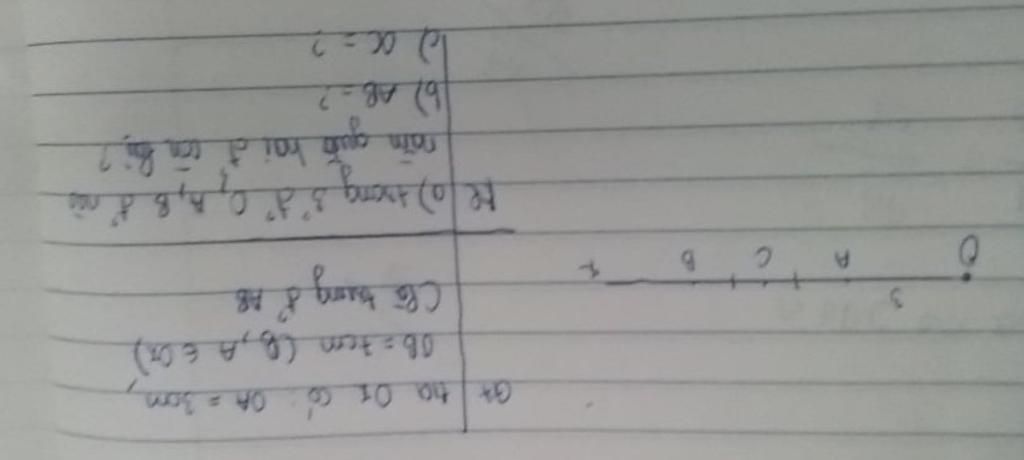 Gt tia Ox có: OA = 3cm,
OB = 7cm (B, A ∈ Ox)
C là trung đ' AB
KL a) trong 3 đ' O, A, B đ' nào
nằm giữa hai đ' còn lại?
b) AB = ?
c) OC = ?
3
O A C B x